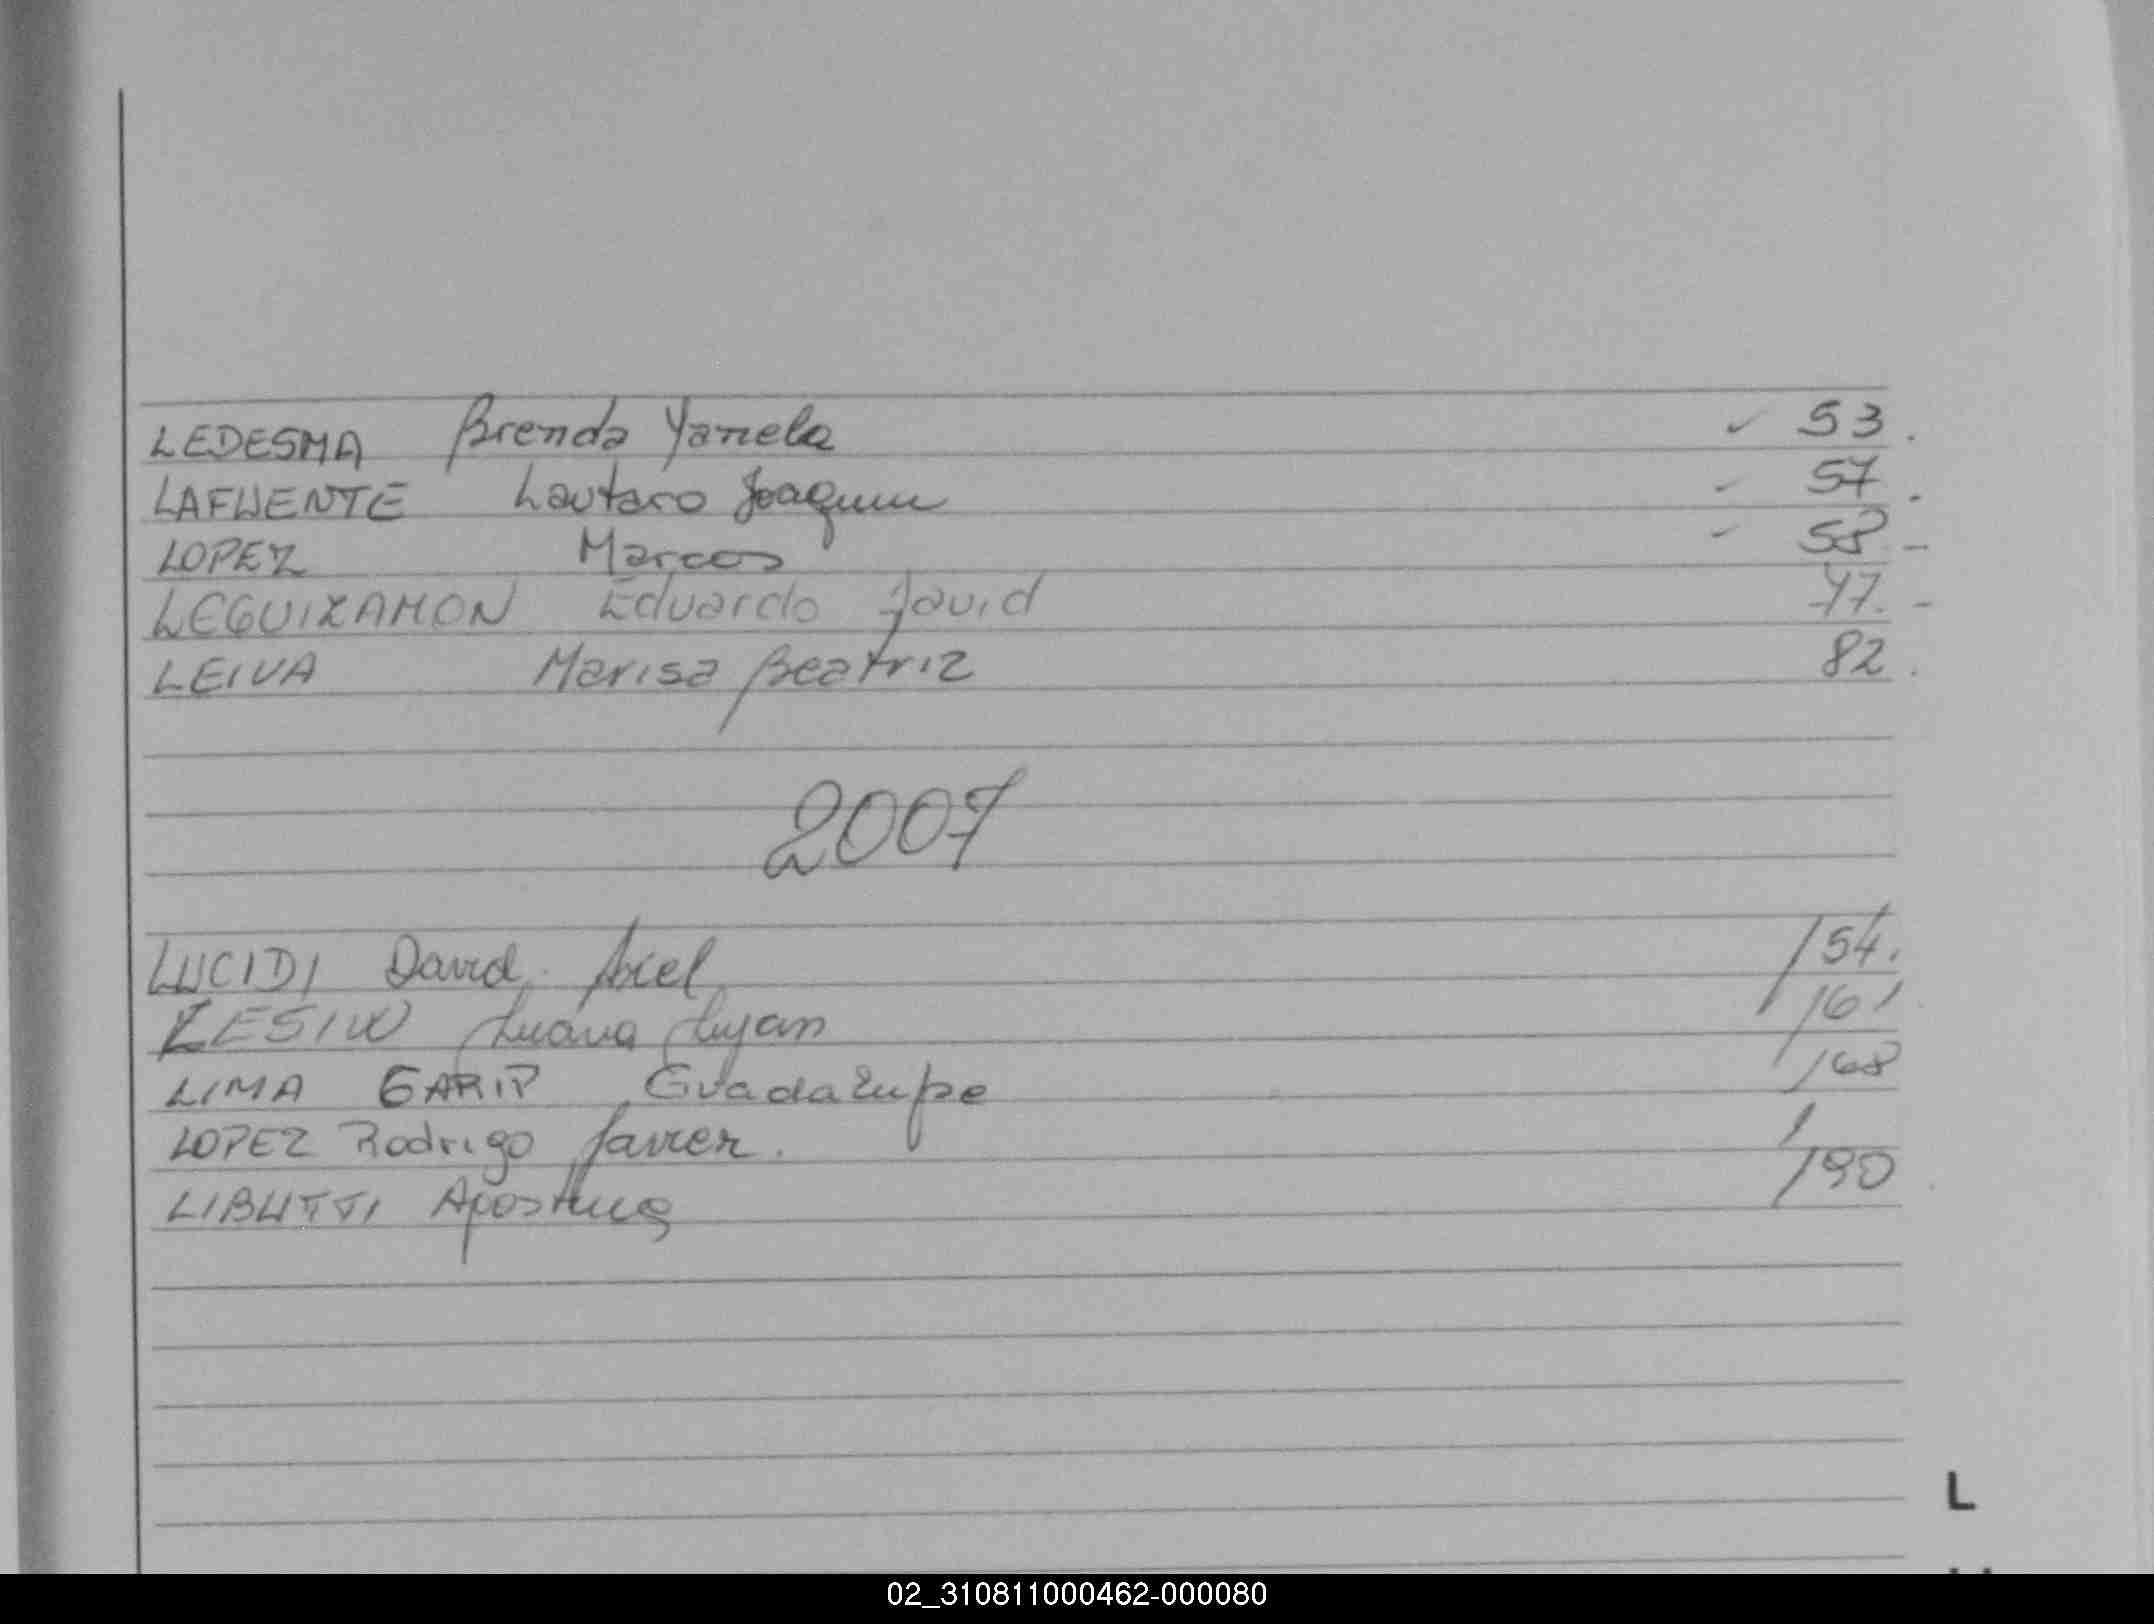 LEDESMA Brenda Yanela ✓ 53.
LAFUENTE Lautaro Joaquin ✓ 57.
LOPEZ Marcos ✓ 58-
LEGUIZAMON Eduardo David 77.-
LEIVA Marisa Beatriz 82.
2007
LUCIDI David Axel /54.
LESIW Luana Lujan /61
LIMA GARIP Guadalupe /68
LOPEZ Rodrigo Javier. /
LIBUTTI Agostina /90
L
02_310811000462-000080